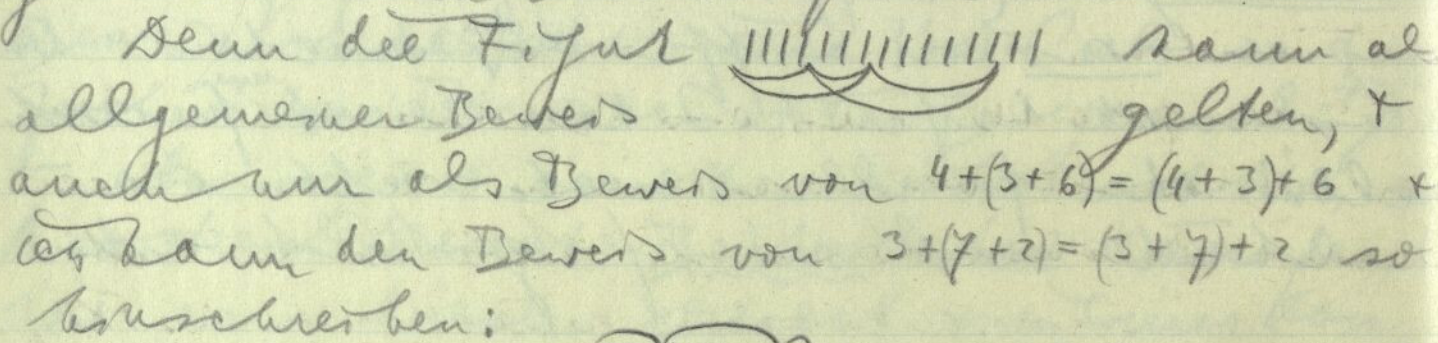 Denn die Figur ||||||||||||||| kann al
allgemeiner Beweis gelten, +
auch nur als Beweis von 4+(3+6) = (4+3)+6 +
ich kann den Beweis von 3+(7+2) = (3+7)+2 so
hinschreiben: